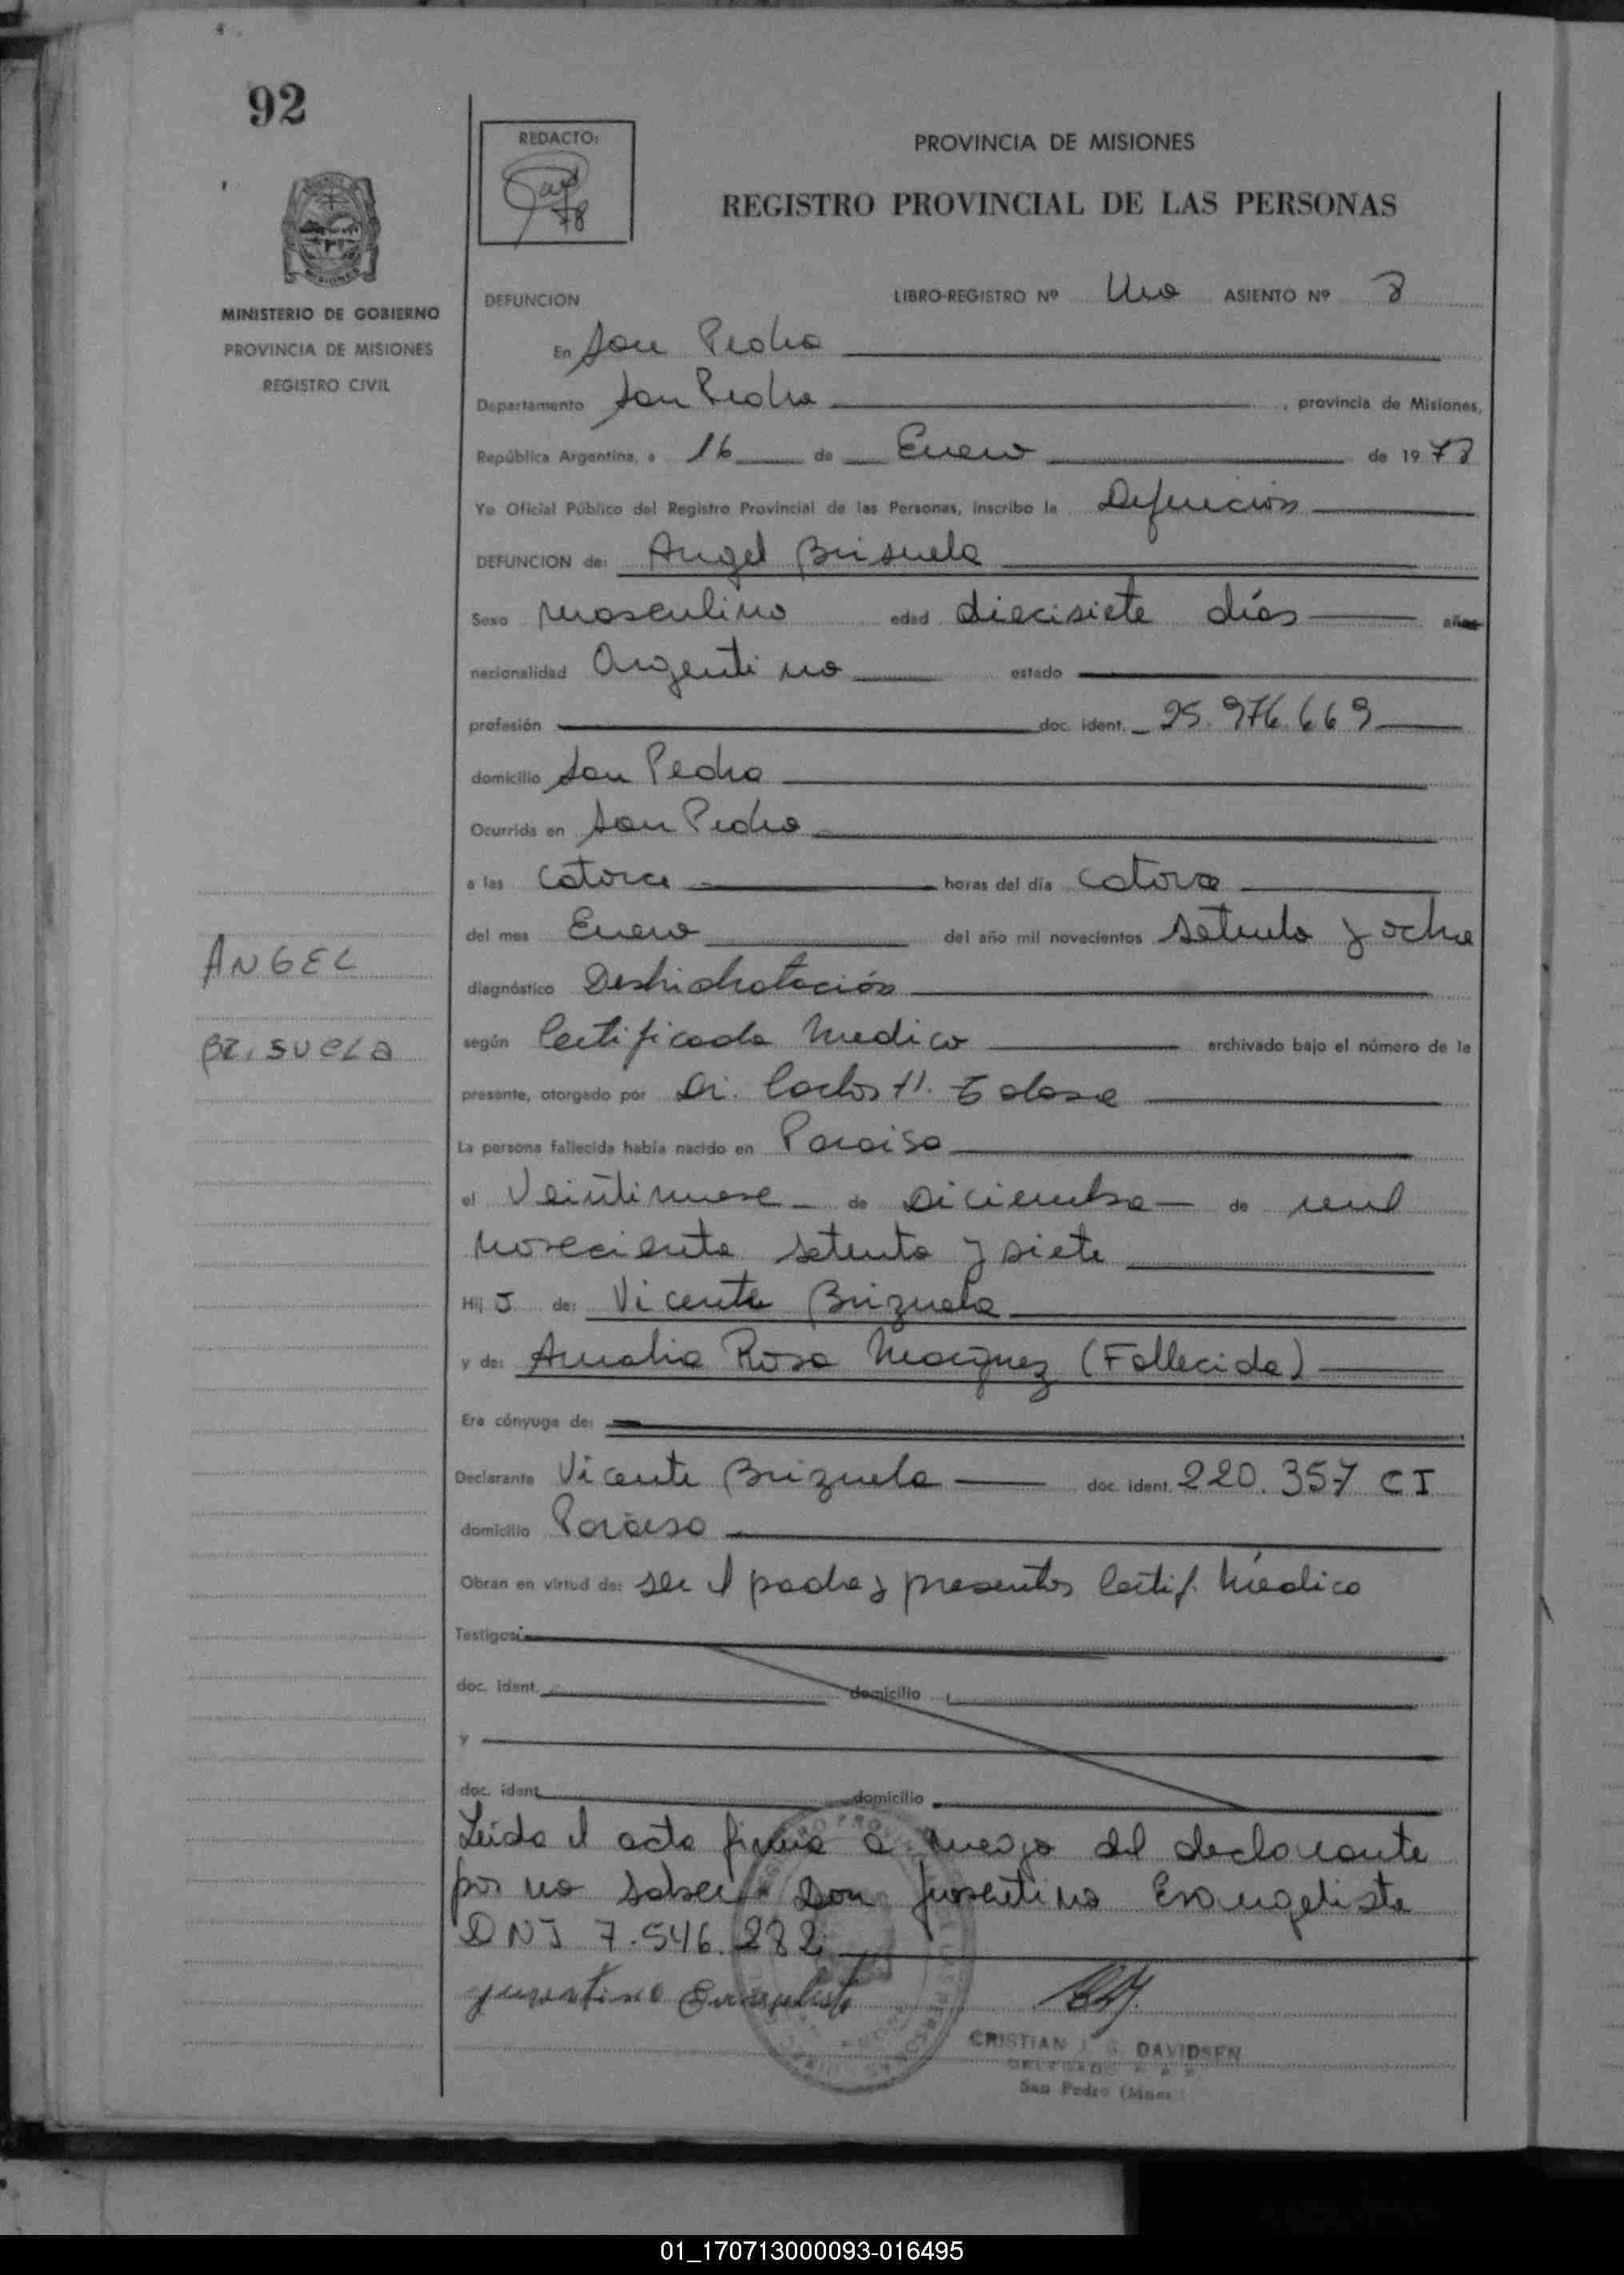 92
REDACTO:
78
PROVINCIA DE MISIONES
REGISTRO PROVINCIAL DE LAS PERSONAS
MINISTERIO DE GOBIERNO
PROVINCIA DE MISIONES
REGISTRO CIVIL
DEFUNCION LIBRO-REGISTRO Nº Uno ASIENTO Nº 8
En San Pedro
Departamento San Pedro, provincia de Misiones,
República Argentina, a 16 de Enero de 1978
Yo Oficial Público del Registro Provincial de las Personas, inscribo la Defunción
DEFUNCION de: Angel Brisuela
Sexo Masculino edad diecisiete días años
nacionalidad Argentino estado
profesión doc. ident. 25.976.669
domicilio San Pedro
Ocurrida en San Pedro
a las catorce horas del día catorce
del mes Enero del año mil novecientos setenta y ocho
diagnóstico Deshidratación
según Certificado Medico archivado bajo el número de la
presente, otorgado por Dr. Carlos H.
La persona fallecida había nacido en Paraiso
el Veintinueve de Diciembre de mil
noveciento setenta y siete
Hij o de: Vicente Brizuela
y de: Amalia Rosa Marquez (Fallecida)
Era cónyuge de:
Declarante Vicente Brizuela doc. ident. 220.357 CI
domicilio Paraiso
Obran en virtud de: ser el padre y presentos Certif. Médico
Testigos:
doc. ident. domicilio
y
doc. ident. domicilio
Leida el acta firma a ruego del declarante
por no saber Don Juventino Evangelista
DNI 7.546.282
Juventino Evangelista
CRISTIAN J. G. DAVIDSEN
DELEGADO
San Pedro (Mnes.)
ANGEL
BRISUELA
01_170713000093-016495